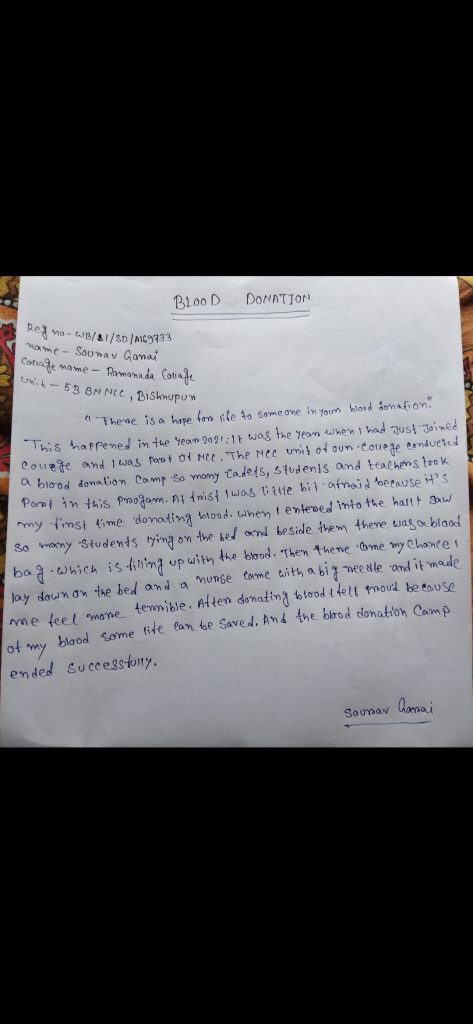 BLOOD DONATION
Reg no - WB/SI/SD/A169733
name - Sourav Garai
Collage name - Ramanada Collage
Unit - 53 BN NCC, Bishnupur
"There is a hope for life to someone in your blood donation."
This happened in the Year 2021. It was the year when I had Just Joined
College and I was Part of NCC. The NCC unit of our college conducted
a blood donation Camp so many Cadets, students and teachers took
Part in this Progam. At frist I was little bit afraid because it's
my first time donating blood. When I entered into the hall I saw
so many Students lying on the bed and beside them there was a blood
bag. which is filling up with the blood. Then there came my chance I
lay down on the bed and a nurse came with a big needle and it made
me feel more terrible. After donating blood I felt proud because
of my blood some life can be saved. And the blood donation Camp
ended successfully.
Sourav Garai